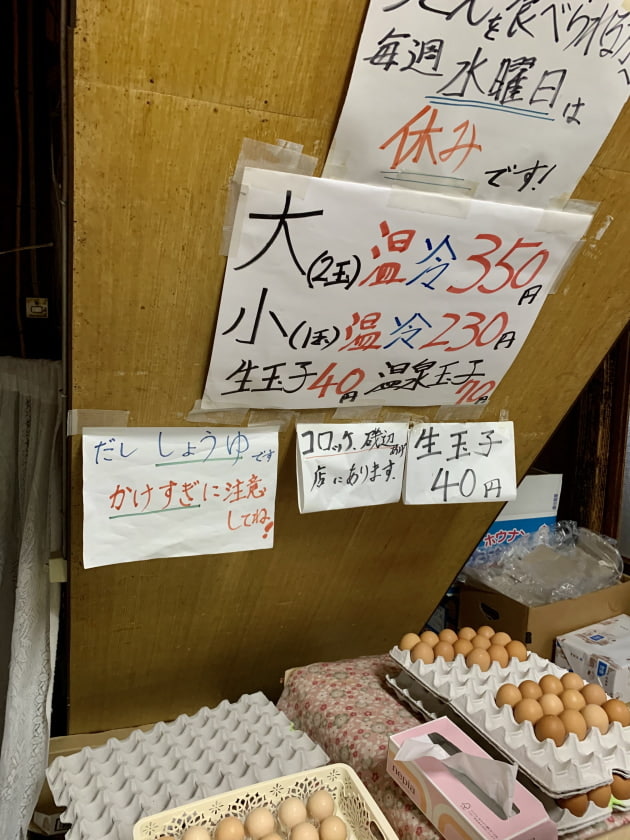 うどんを食べられる方へ
毎週 水曜日は
休みです!
大(2玉)温冷350円
小(1玉)温冷230円
生玉子40円 温泉玉子70円
だししょうゆです
かけすぎに注意
してね!
コロッケ.磯辺あげ
店にあります.
生玉子
40円
ホウナン
nepia